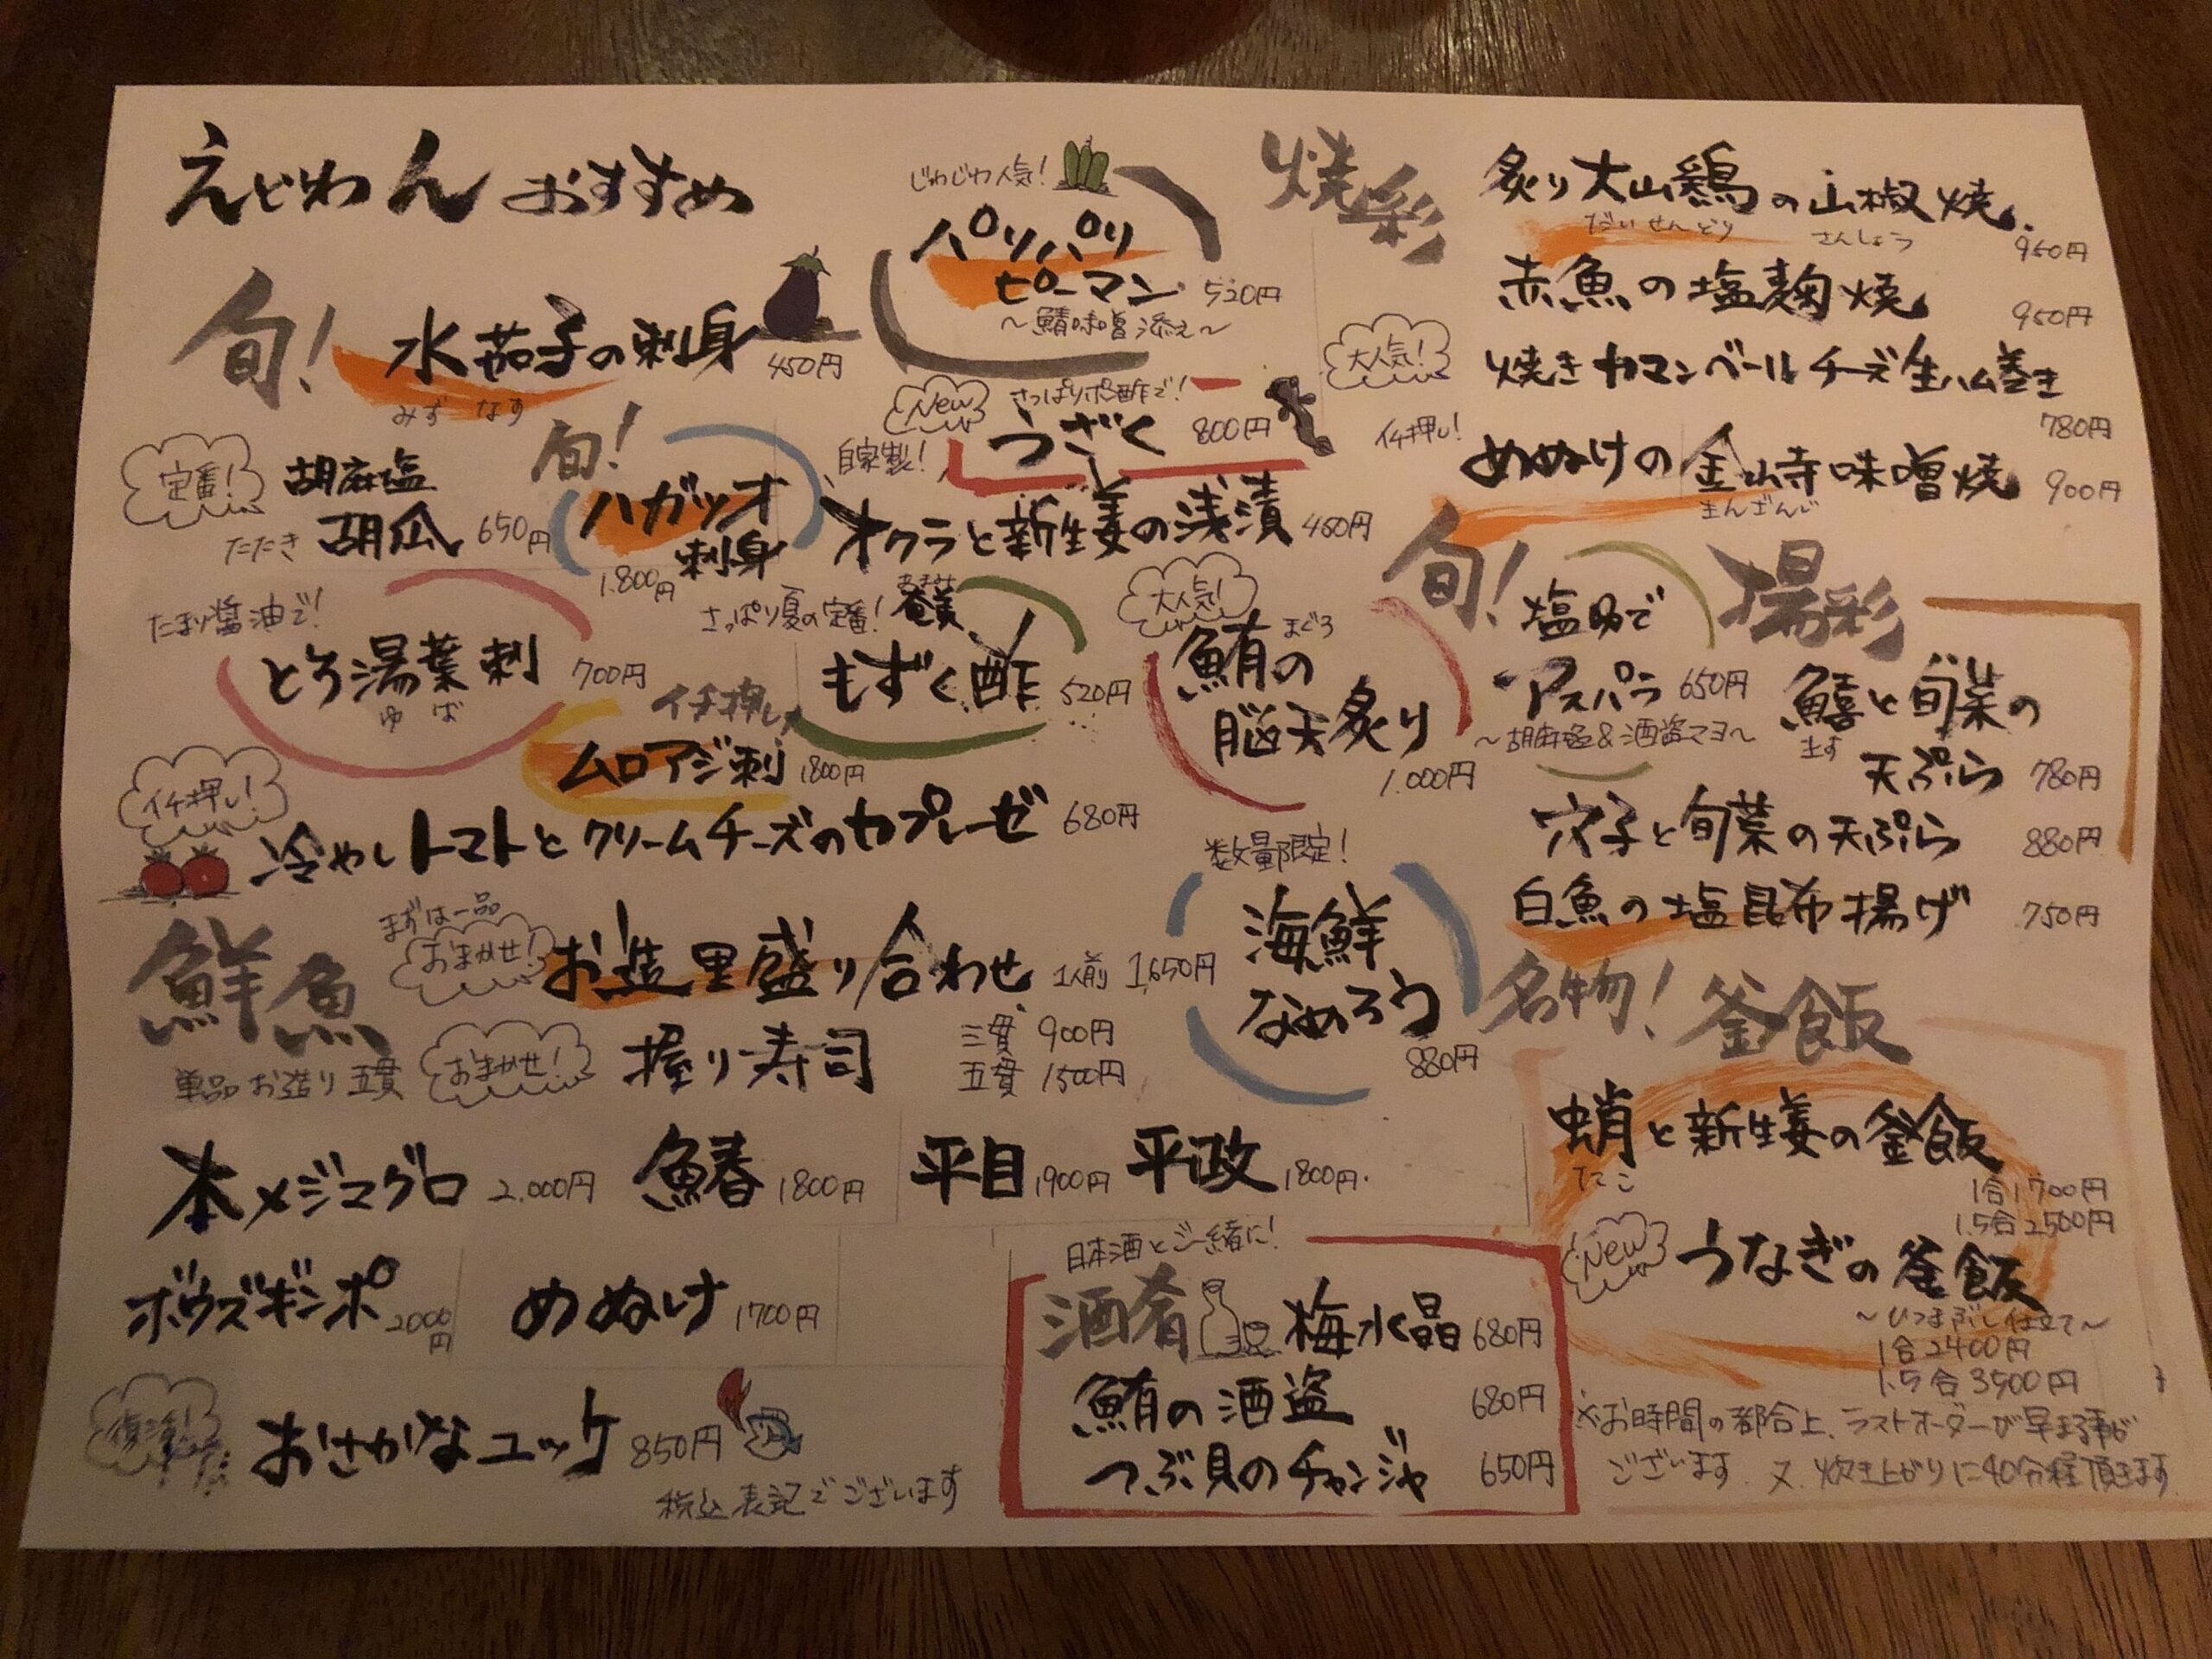 えどわんおすすめ
旬!
水茄子の刺身
みずなす
450円
じわじわ人気!
パリパリ
ピーマン 520円
〜鯖味噌添え〜
定番!
胡麻塩
たたき 胡瓜 650円
旬!
ハガツオ
刺身
1.800円
New
さっぱりポン酢で!
うざく 800円
自家製!
オクラと新生姜の浅漬 480円
たまり醤油で!
とろ湯葉刺 700円
ゆば
さっぱり夏の定番!
もずく酢 520円
イチ押し
ムロアジ刺 1800円
大人気!
鮪の
まぐろ
脳天炙り
1.000円
イチ押し!
冷やしトマトとクリームチーズのカプレーゼ 680円
鮮魚
まずは一品
おまかせ!
お造里盛り合わせ 1人前 1,650円
おまかせ!
握り寿司
三貫 900円
五貫 1500円
数量限定!
海鮮
なめろう
880円
単品お造り 五貫
本メジマグロ 2.000円
鰆 1800円
平目 1900円
平政 1800円
ボウズギンポ 2000円
めぬけ 1700円
復活!
おさかなユッケ 850円
税込表記でございます
日本酒とご一緒に!
酒肴
梅水晶 680円
鮪の酒盗 680円
つぶ貝のチャンジャ 650円
焼彩
炙り大山鶏の山椒焼
だいせんどり さんしょう
950円
赤魚の塩麹焼
950円
大人気!
焼きカマンベールチーズ生ハム巻き
780円
イチ押し!
めぬけの金山寺味噌焼 900円
きんざんじ
旬!
塩ゆで
アスパラ 650円
〜胡麻塩&酒盗マヨ〜
揚彩
鱚と旬菜の
きす
天ぷら 780円
穴子と旬菜の天ぷら 880円
白魚の塩昆布揚げ 750円
名物!釜飯
蛸と新生姜の釜飯
たこ
1合1,700円
1.5合2500円
New
うなぎの釜飯
〜ひつまぶし仕立て〜
1合2400円
1.5合3500円
※お時間の都合上、ラストオーダーが早まる事が
ございます。又、炊き上がりに40分程頂きます